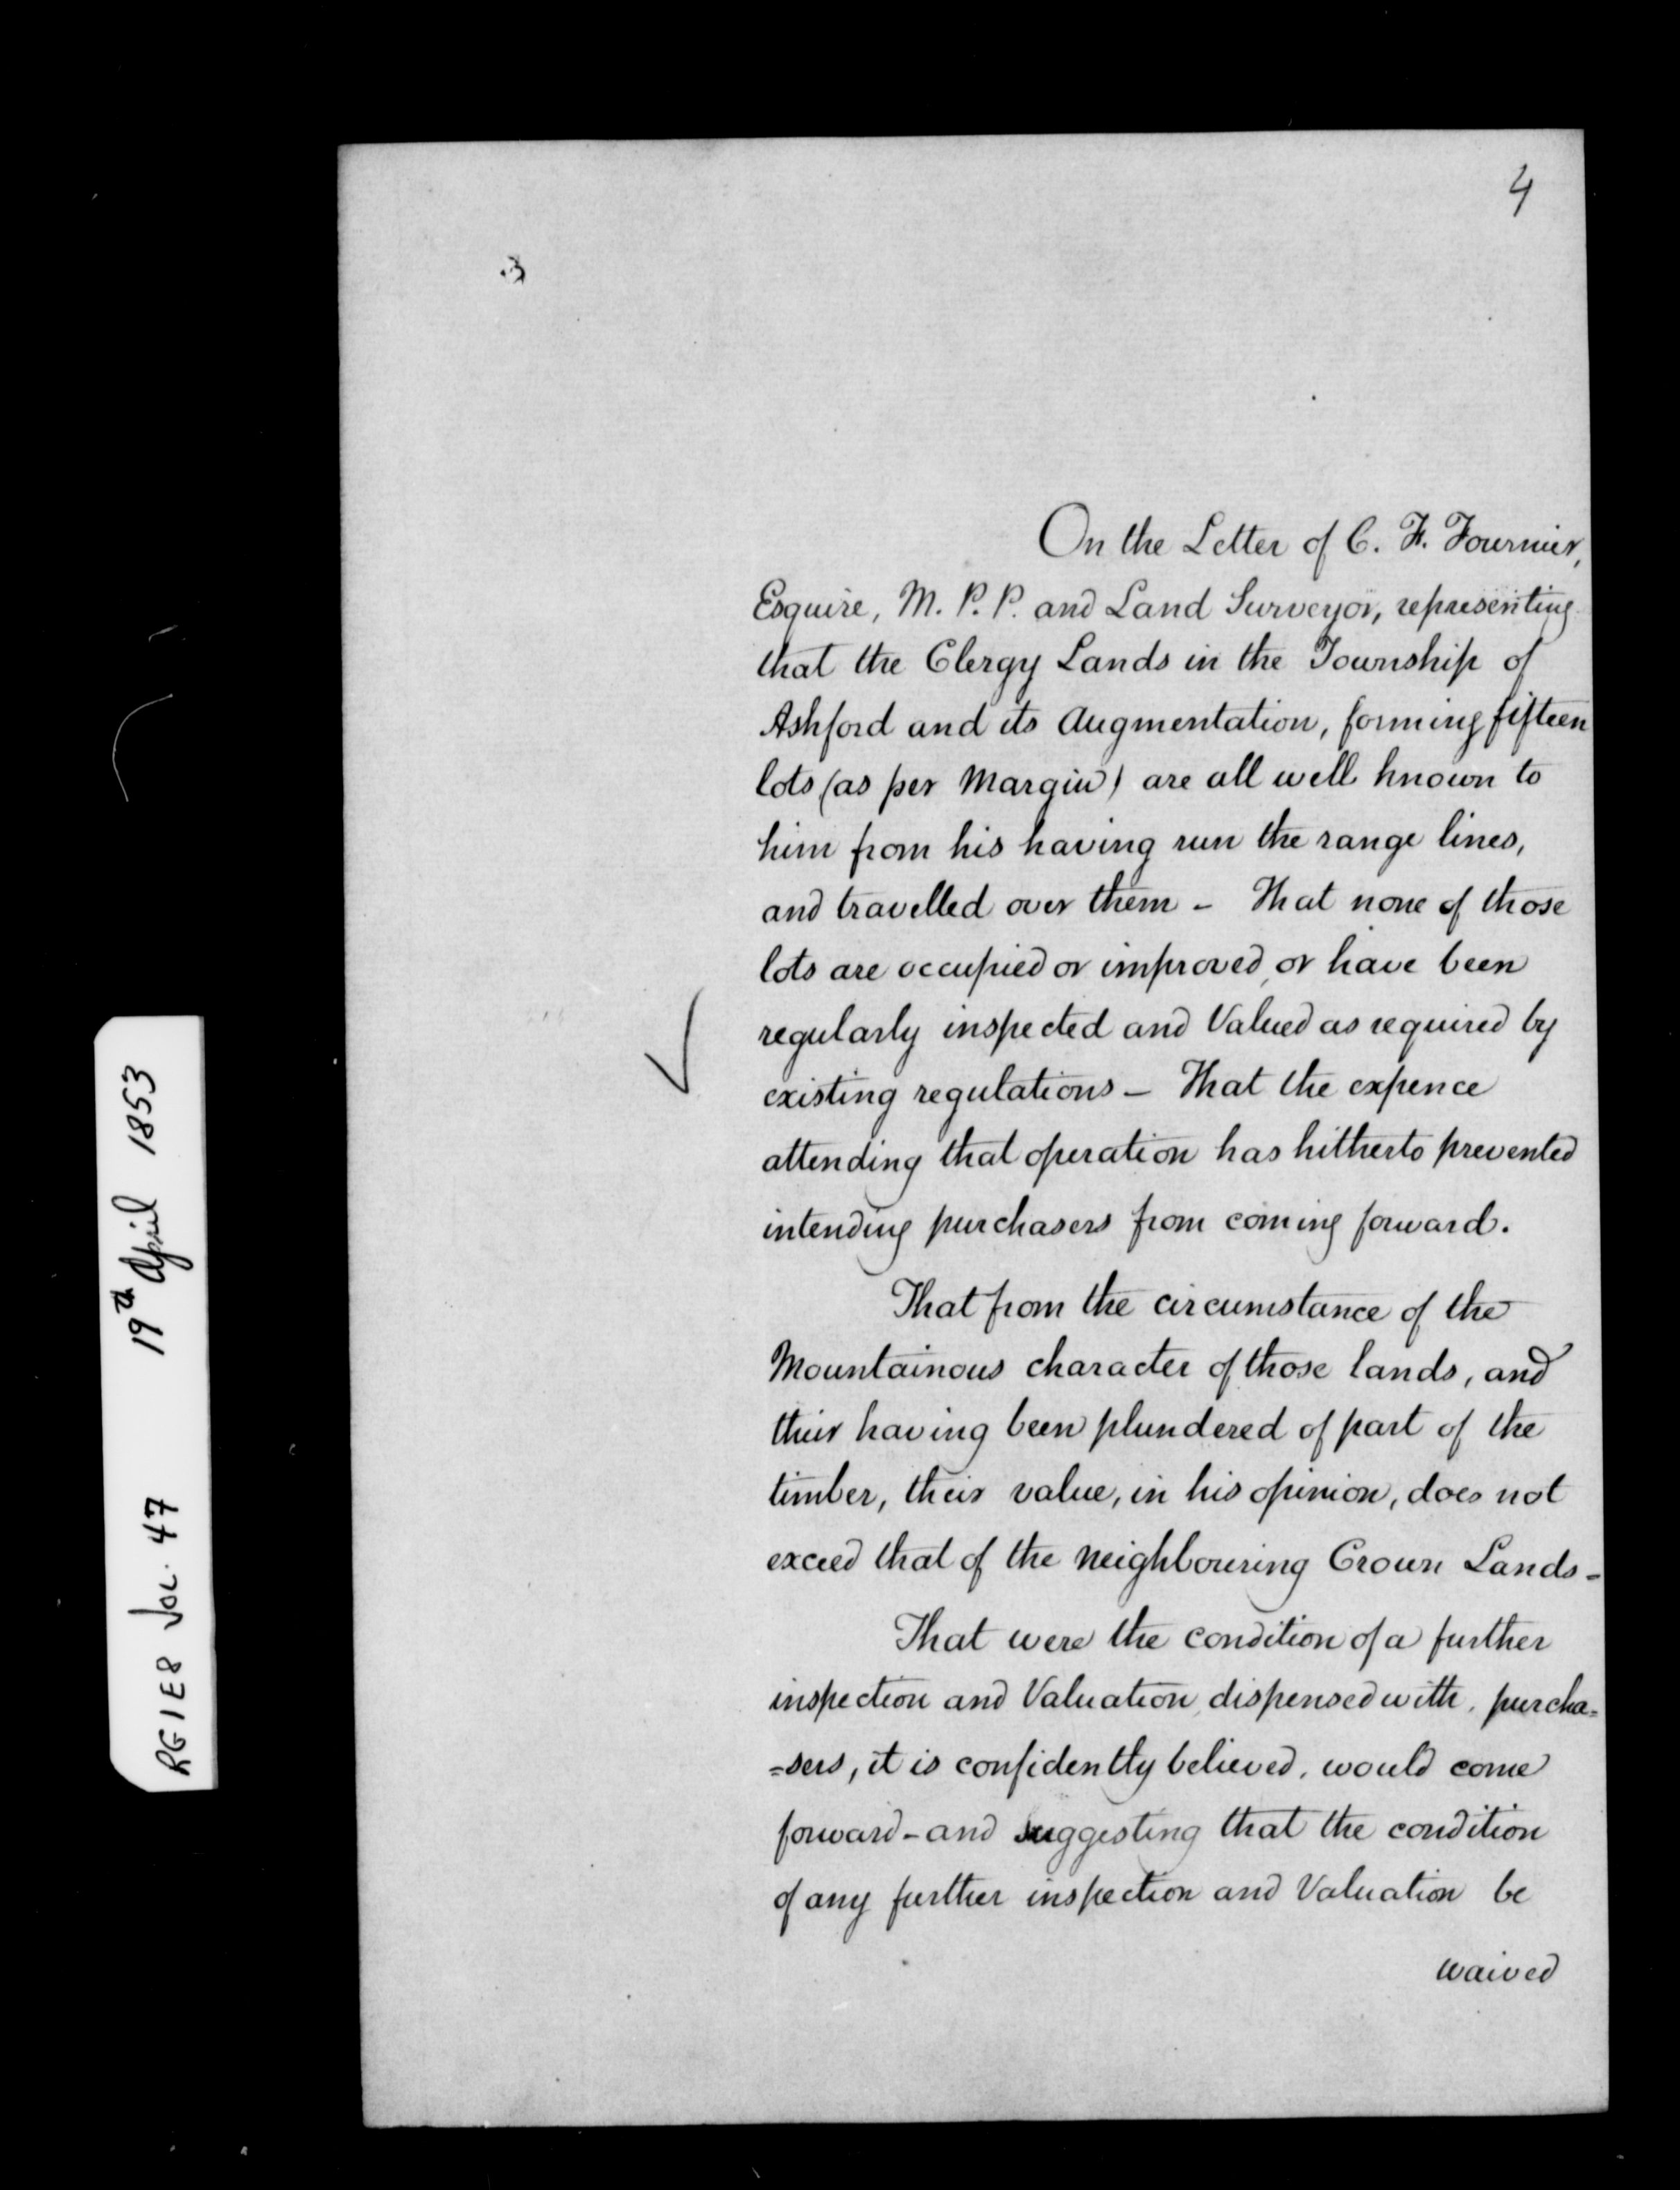 4
3
On the Letter of C. F. Fournier,
Esquire, M. P. P. and Land Surveyor, representing
that the Clergy Lands in the Township of
Ashford and its Augmentation, forming fifteen
lots (as per Margin) are all well known to
him from his having run the range lines,
and travelled over them - That none of those
lots are occupied or improved, or have been
regularly inspected and Valued as required by
existing regulations - That the expence
attending that operation has hitherto prevented
intending purchasers from coming forward.
That from the circumstance of the
Mountainous character of those lands, and
their having been plundered of part of the
timber, their value, in his opinion, does not
exceed that of the neighbouring Crown Lands -
That were the condition of a further
inspection and Valuation, dispensed with, purcha=
=sers, it is confidently believed, would come
forward - and suggesting that the condition
of any further inspection and Valuation be
waived
RG 1 E8 Vol. 47 19th April 1853